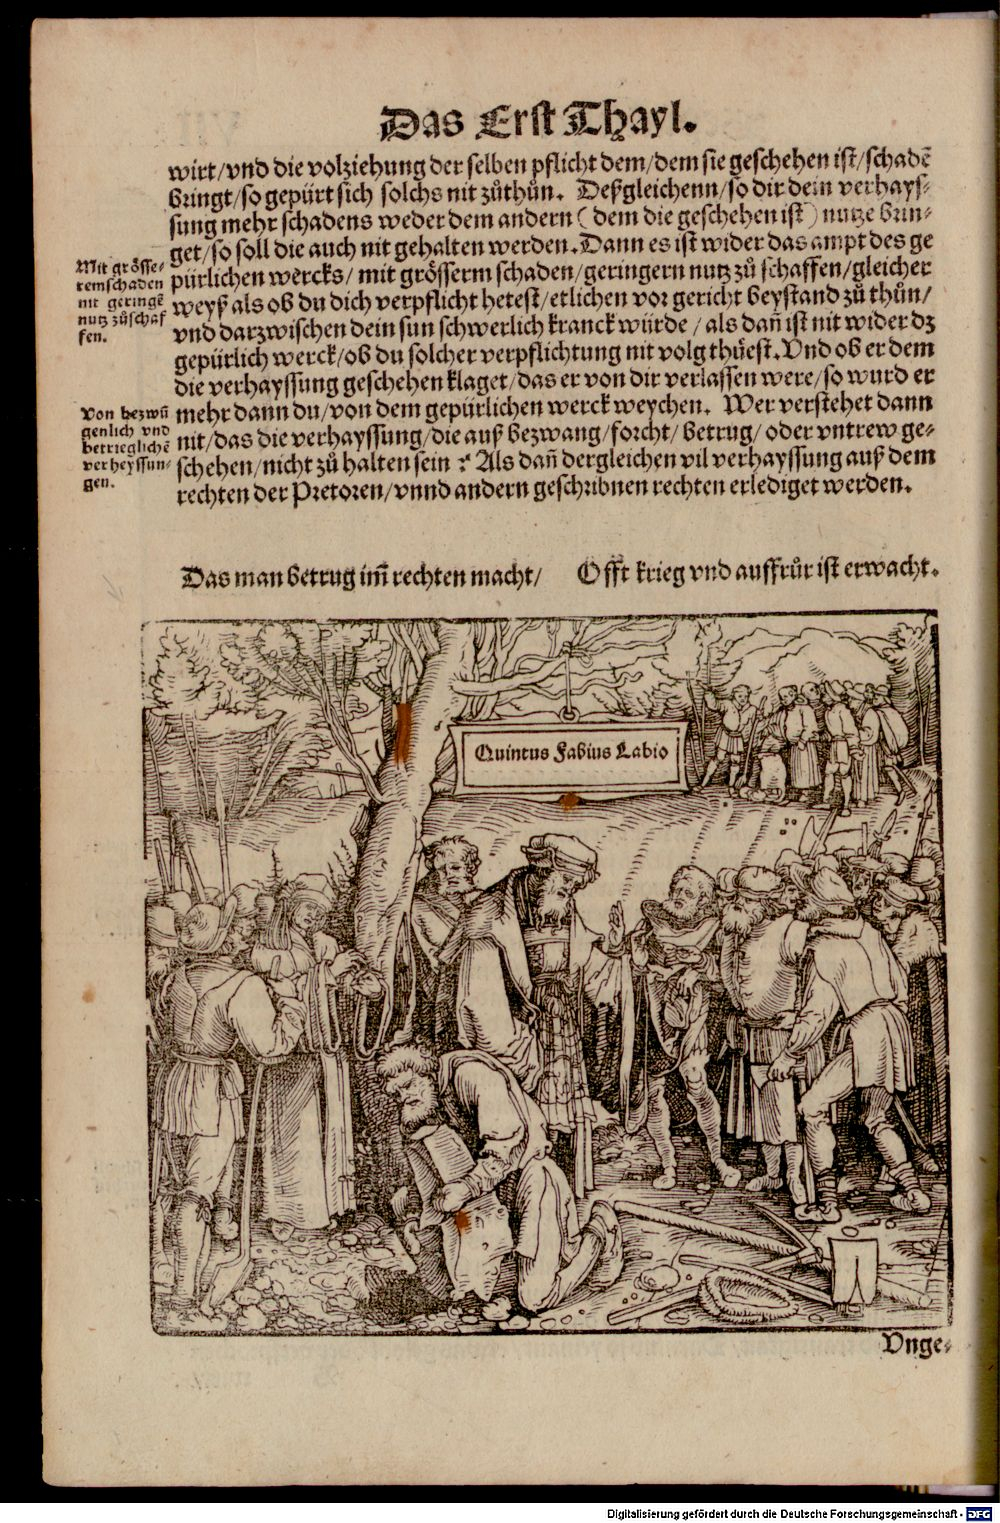 Das Erst Thayl.
wirt/vnd die volziehung der selben pflicht dem/dem sie geschehen ist/schadē
bringt/so gepürt sich solchs nit zůthůn. Deßgleichenn/so dir dein verhays-
sung mehr schadens weder dem andern (dem die geschehen ist) nutze brin-
get/so soll die auch nit gehalten werden. Dann es ist wider das ampt des ge
pürlichen wercks/ mit grösserm schaden/geringern nutz zů schaffen/gleicher
weyß als ob du dich verpflicht hetest/etlichen vor gericht beystand zů thůn/
vnd darzwischen dein sun schwerlich kranck würde/als dañ ist nit wider dz
gepürlich werck/ob du solcher verpflichtung nit volg thüest. Vnd ob er dem
die verhayssung geschehen klaget/das er von dir verlassen were/so wurd er
mehr dann du/von dem gepürlichen werck weychen. Wer verstehet dann
nit/das die verhayssung/die auß bezwang/forcht/betrug/oder vntrew ge-
schehen/nicht zů halten sein? Als dañ dergleichen vil verhayssung auß dem
rechten der Pretoren/vnnd andern geschribnen rechten erlediget werden.
Mit grösse-
rem schaden
nit geringē
nutz zůschaf
fen.
Von bezwū
genlich vnd
betrieglichē
verheyssun-
gen.
Das man betrug im̄ rechten macht/ Offt krieg vnd auffrůr ist erwacht.
Quintus Fabius Labio
Vnge-
Digitalisierung gefördert durch die Deutsche Forschungsgemeinschaft - DFG